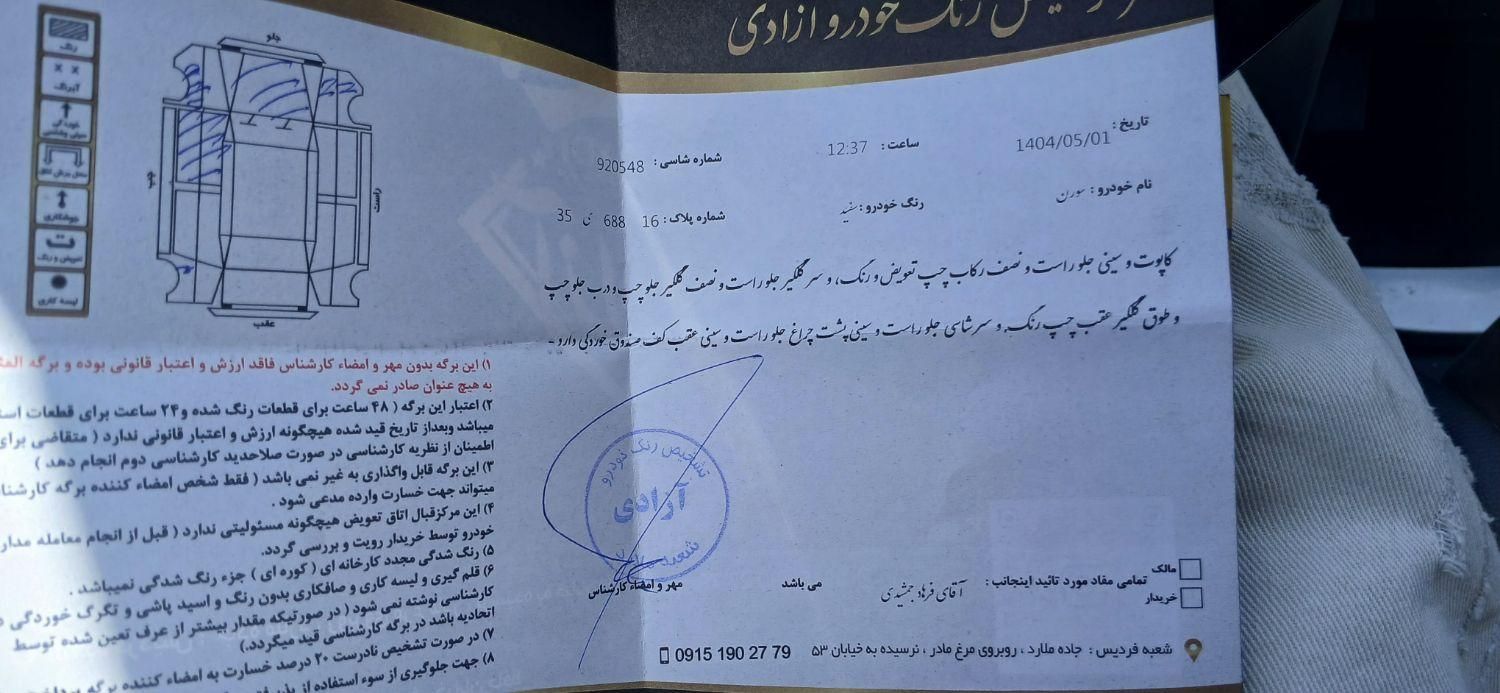 رنگ خودرو آزادی
تاریخ: 1404/05/01
ساعت: 12:37
شماره شاسی: 920548
نام خودرو: سورن
رنگ خودرو: سفید
شماره پلاک: 16 688 ی 35
کاپوت و سینی جلو راست و نصف رکاب چپ تعویض و رنگ، و سر گلگیر جلو راست و نصف گلگیر جلو چپ و درب جلو چپ
و طوق گلگیر عقب چپ رنگ. و سرشاسی جلو راست و سینی پشت چراغ جلو راست و سینی عقب کف صندوق خوردگی دارد -
تشخیص رنگ خودرو
آزادی
شعبه
مهر و امضاء کارشناس
مالک
خریدار
تمامی مفاد مورد تائید اینجانب: آقای فرهاد جمشیدی می باشد
شعبه فردیس: جاده ملارد، روبروی مرغ مادر، نرسیده به خیابان ۵۳
0915 190 27 79
رنگ
× ×
آبرنگ
خوردگی
جوشکاری
ت
تعویض و رنگ
لیسه کاری
جلو
چپ
راست
عقب
۱) این برگه بدون مهر و امضاء کارشناس فاقد ارزش و اعتبار قانونی بوده و برگه
به هیچ عنوان صادر نمی گردد.
۲) اعتبار این برگه ( ۴۸ ساعت برای قطعات رنگ شده و ۲۴ ساعت برای قطعات
میباشد وبعداز تاریخ قید شده هیچگونه ارزش و اعتبار قانونی ندارد ( متقاضی برای
اطمینان از نظریه کارشناسی در صورت صلاحدید کارشناسی دوم انجام دهد )
۳) این برگه قابل واگذاری به غیر نمی باشد ( فقط شخص امضاء کننده برگه
میتواند جهت خسارت وارده مدعی شود .
۴) این مرکزقبال اتاق تعویض هیچگونه مسئولیتی ندارد ( قبل از انجام معامله
خودرو توسط خریدار رویت و بررسی گردد.
۵) رنگ شدگی مجدد کارخانه ای ( کوره ای ) جزء رنگ شدگی نمیباشد .
۶) قلم گیری و لیسه کاری و صافکاری بدون رنگ و اسید پاشی و تگرگ خوردگی
کارشناسی نوشته نمی شود ( در صورتیکه مقدار بیشتر از عرف تعین شده توسط
اتحادیه باشد در برگه کارشناسی قید میگردد.)
۷) در صورت تشخیص نادرست ۲۰ درصد خسارت به امضاء کننده برگه
۸) جهت جلوگیری از سوء استفاده از